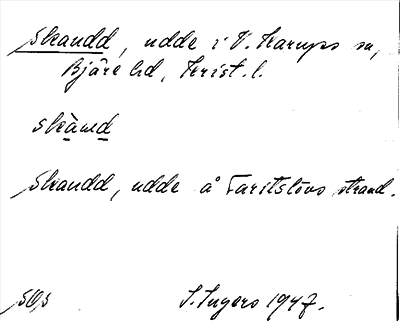 Skandd, udde i V. Karups sn,
Bjäre hd, Krist. l.
skànd
Skandd, udde å Faritslövs strand.
S. Ingers 1947.